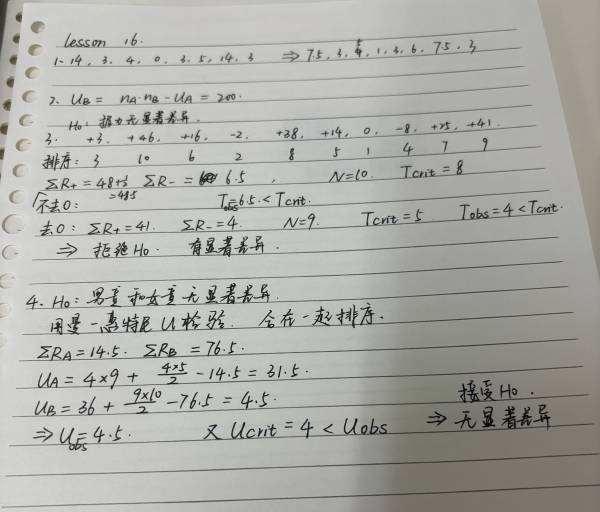 lesson 16.
1. 14, 3, 4, 0, 3, 5, 14, 3 ⇒ 7.5, 3, 5, 1, 3, 6, 7.5, 3
2. UB = nA·nB - UA = 200.
H0: 握力无显著差异.
3. +3, +46, +16, -2, +38, +14, 0, -8, +25, +41.
排序: 3 10 6 2 8 5 1 4 7 9
ΣR+ = 48+½ ΣR- = 6.5, N=10. Tcrit = 8
=48.5
不去0: Tobs=6.5 < Tcrit.
去0: ΣR+ = 41. ΣR- = 4. N=9. Tcrit = 5 Tobs = 4 < Tcrit.
⇒ 拒绝H0. 有显著差异.
4. H0: 男童和女童无显著差异.
用曼—惠特尼U检验. 合在一起排序.
ΣRA = 14.5. ΣRB = 76.5.
UA = 4×9 + 4×5/2 - 14.5 = 31.5.
UB = 36 + 9×10/2 - 76.5 = 4.5.
⇒ Uobs = 4.5. 又 Ucrit = 4 < Uobs ⇒ 接受H0.
无显著差异